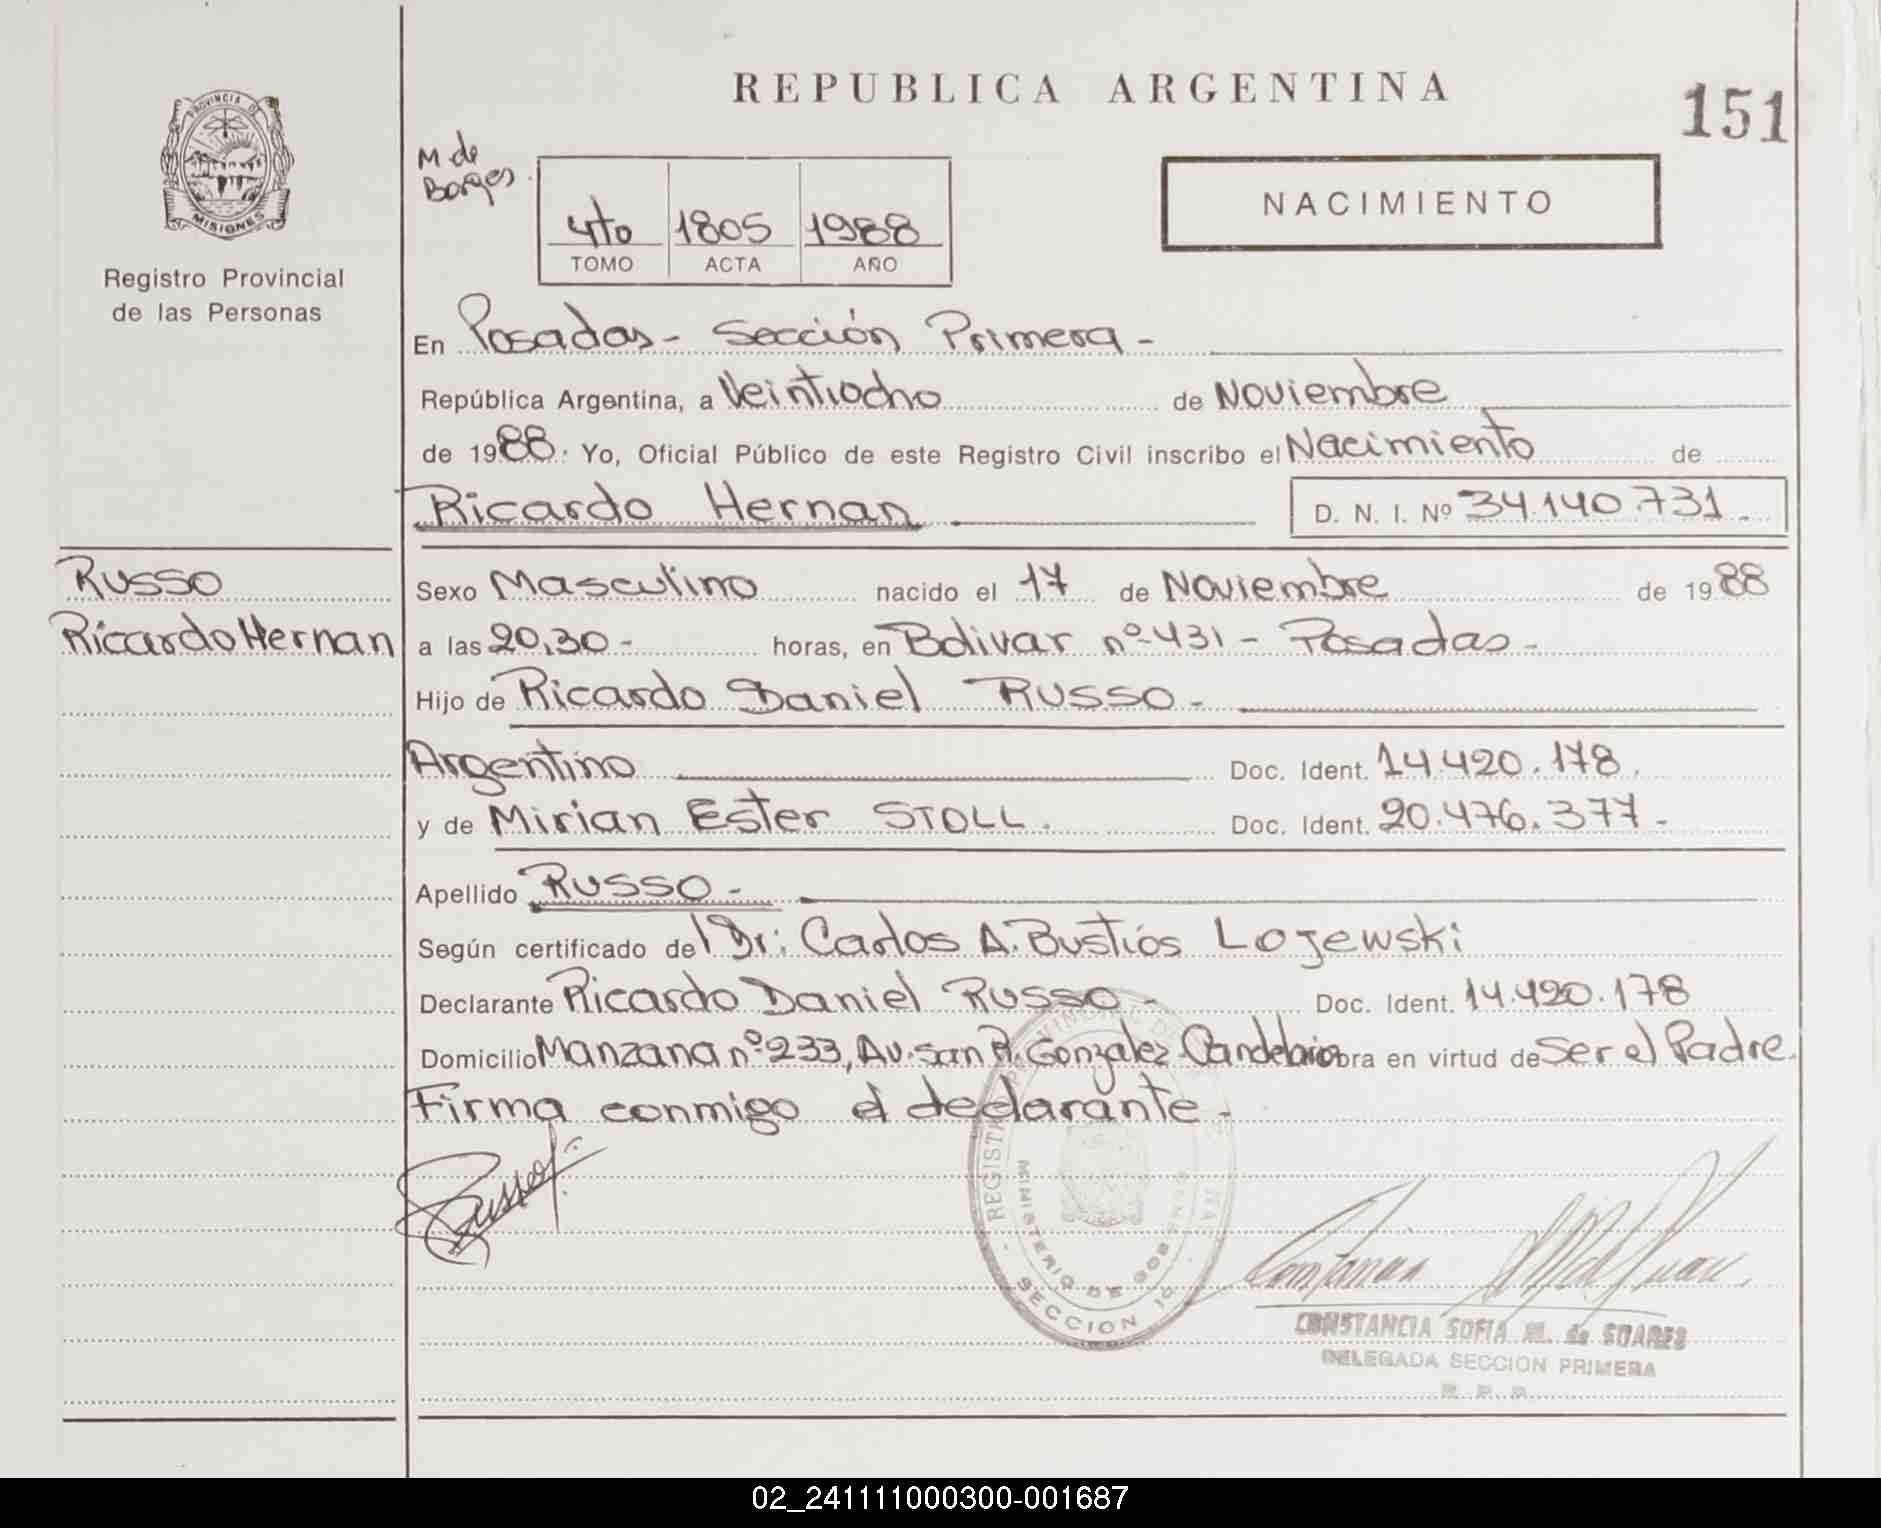 REPUBLICA ARGENTINA
151
PROVINCIA DE
MISIONES
Registro Provincial
de las Personas
M de
Borges
4to 1805 1988
TOMO ACTA AÑO
NACIMIENTO
En Posadas - Sección Primera -
República Argentina, a Veintiocho de Noviembre
de 1988. Yo, Oficial Público de este Registro Civil inscribo el Nacimiento de
Ricardo Hernan D. N. I. Nº 34.140.731.
RUSSO
Ricardo Hernan
Sexo Masculino nacido el 17 de Noviembre de 1988
a las 20,30 - horas, en Bolivar nº 431 - Posadas -
Hijo de Ricardo Daniel RUSSO -
Argentino Doc. Ident. 14.420.178.
y de Mirian Ester STOLL. Doc. Ident. 20.476.377 -
Apellido RUSSO -
Según certificado de l Dr: Carlos A. Bustios Lojewski
Declarante Ricardo Daniel RUSSO - Doc. Ident. 14.420.178
Domicilio Manzana nº 233, Av. San R. Gonzalez Candelaria obra en virtud de Ser el Padre.
Firma conmigo el declarante -
Russo
REGISTRO PROVINCIAL DE
MINISTERIO DE GOBIERNO
SECCION 1º
CONSTANCIA SOFIA M. de SUARES
DELEGADA SECCION PRIMERA
R. P. P.
02_241111000300-001687